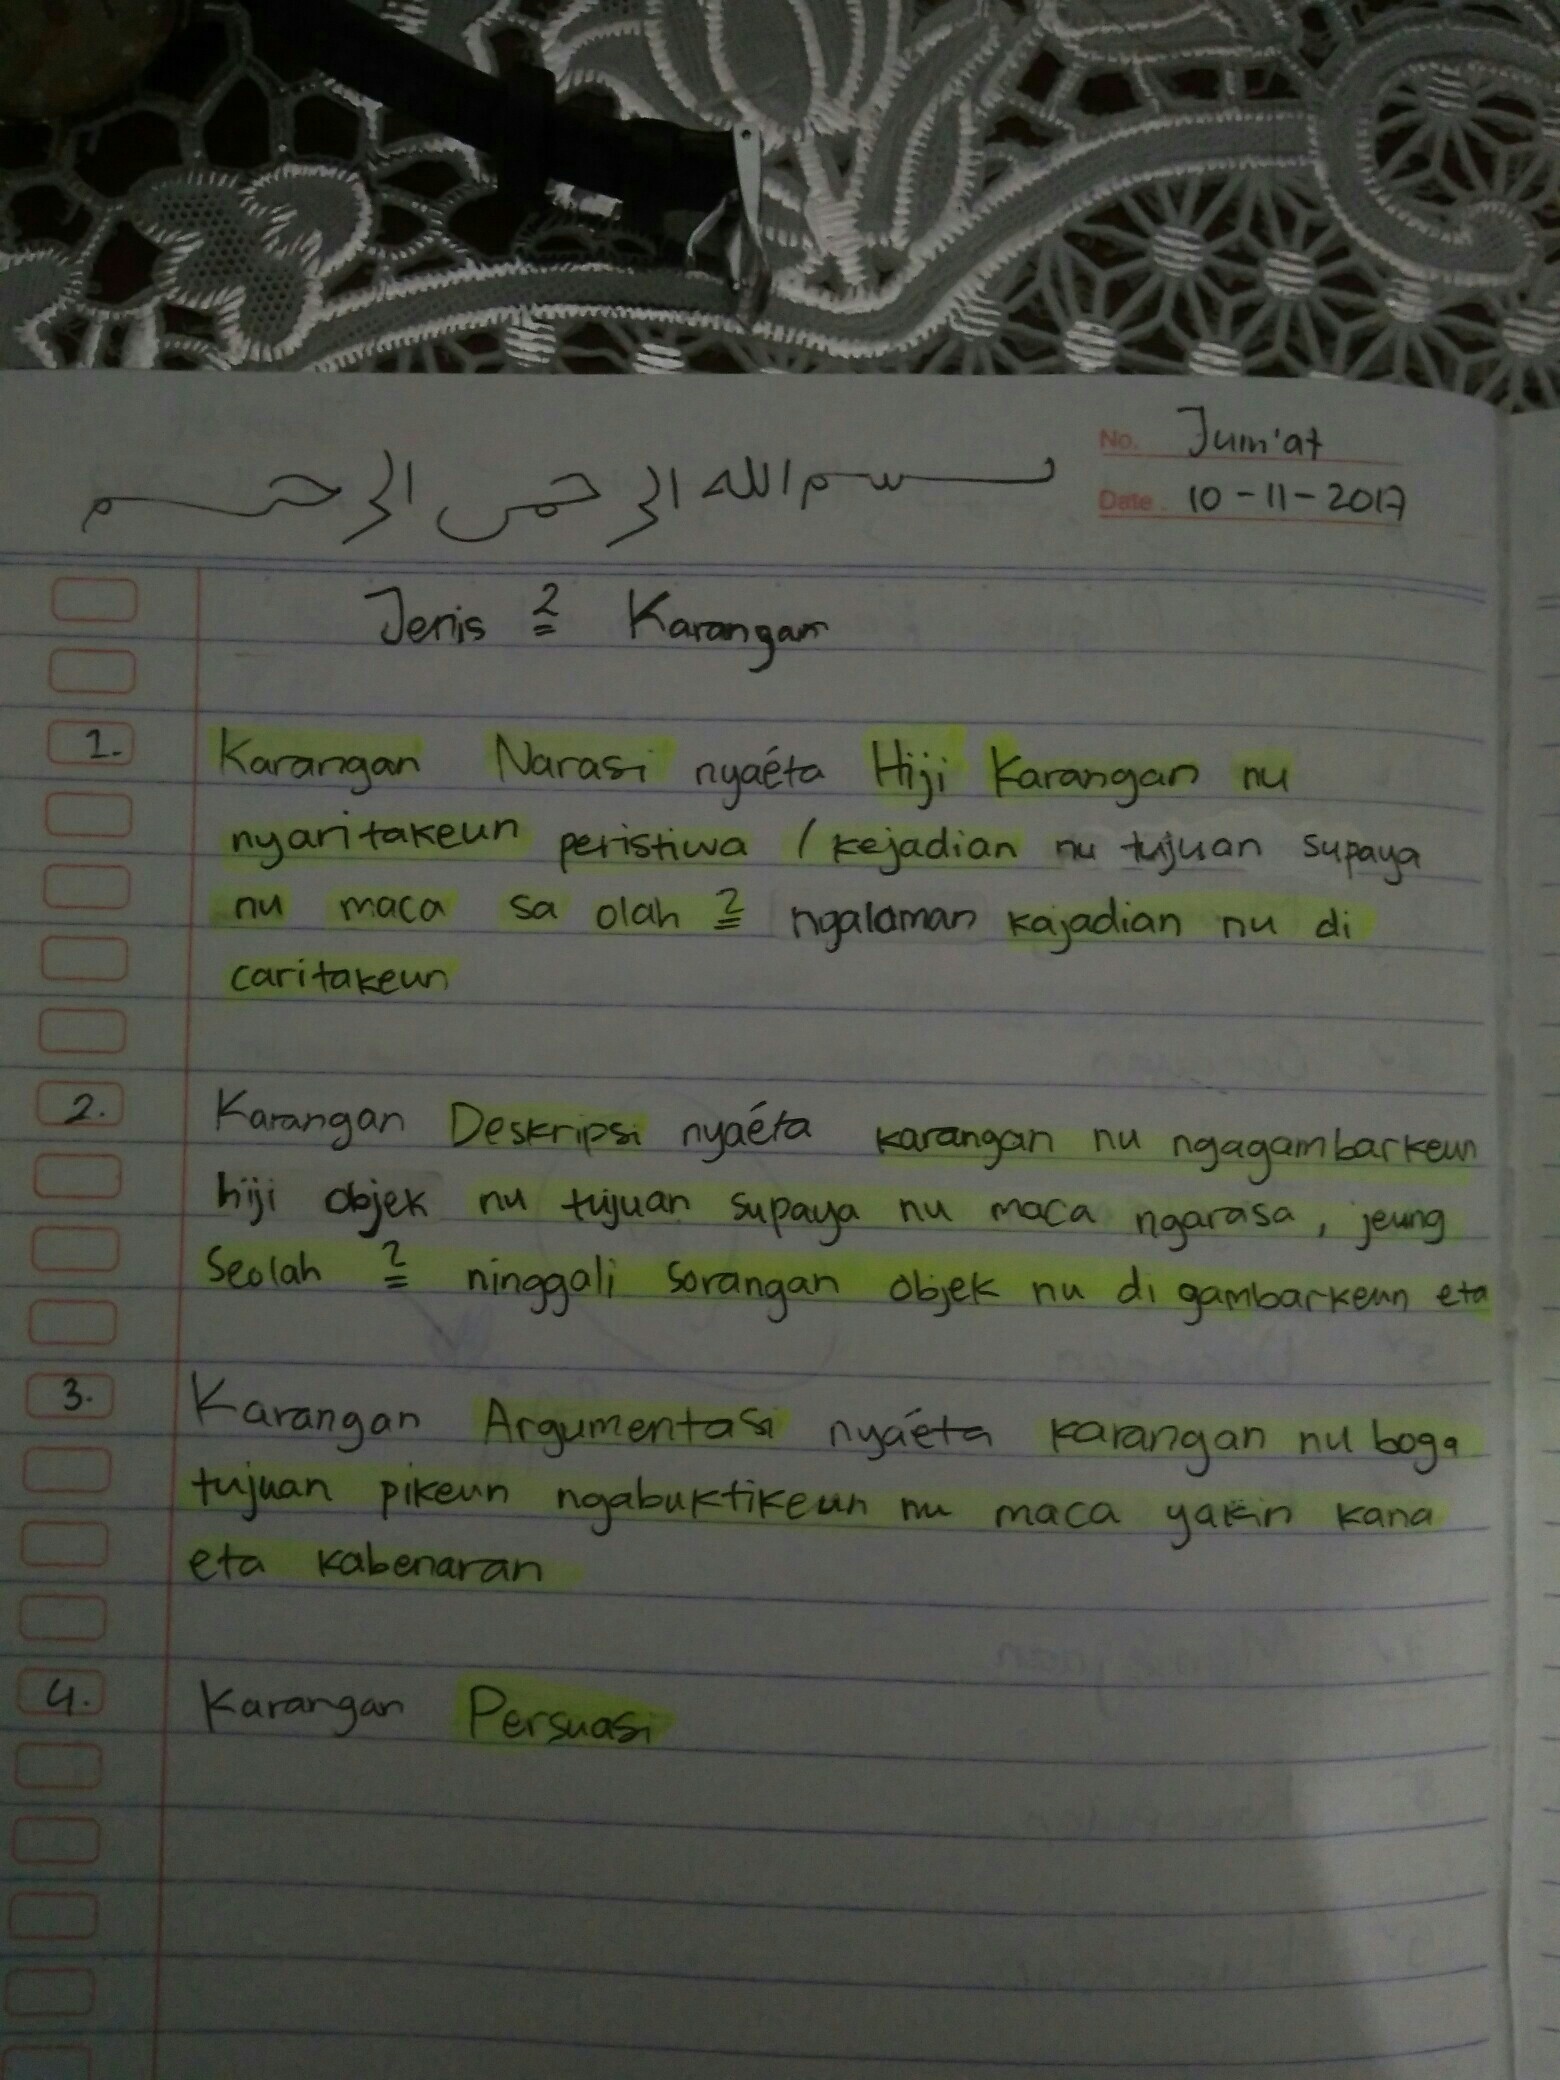 No. Jum'at
بسم الله الرحمن الرحيم
Date. 10-11-2017
Jenis ² Karangan
1. Karangan Narasi nyaéta Hiji Karangan nu
nyaritakeun peristiwa / kejadian nu tujuan supaya
nu maca sa olah ² ngalaman kajadian nu di
caritakeun
2. Karangan Deskripsi nyaéta karangan nu ngagambarkeun
hiji objek nu tujuan supaya nu maca ngarasa, jeung
seolah ² ninggali sorangan objek nu di gambarkeun eta
3. Karangan Argumentasi nyaéta karangan nu boga
tujuan pikeun ngabuktikeun nu maca yakin kana
eta kabenaran
4. Karangan Persuasi